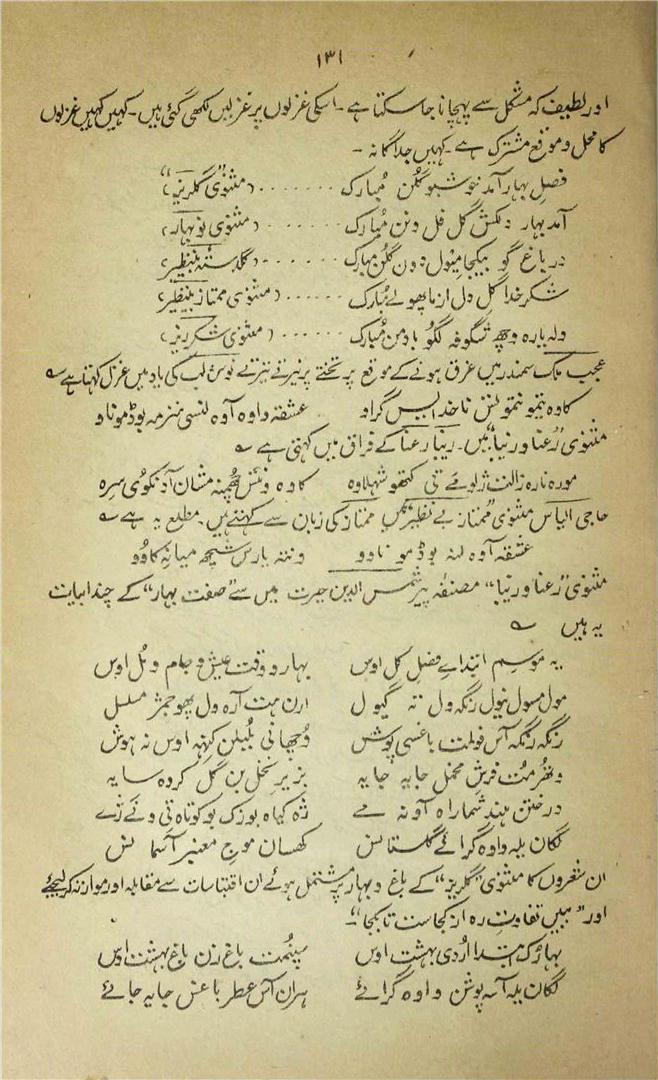 ۱۳۱
اور لطیف کہ مشکل سے پہچانا جاسکتا ہے۔ اسکی غزلوں پر غزلیں لکھی گئی ہیں۔ کہیں کہیں غزلوں
کا محل و موقع مشترک ہے۔ کہیں جداگانہ۔
فصلِ بہار آمد خوشبو گلن مُبارک ....... (مثنوی "گلریز")
آمد بہار دلکش گل فل ونن مُبارک ....... (مثنوی نوبہار)
در باغ گو یکجا میول دون گلن مبارک ....... (گلدستہ بینظیر)
شکر خدا گل دل ازما پھولے مُبارک ....... (مثنوی ممتاز بینظیر)
ولہ یارہ وچھ شگوفہ لگو بادمن مُبارک ....... (مثنوی شکرریز)
عجب ملک سمندر میں غرق ہونے کے موقع پر تختے پر تیرتے تیرتے نوش لب کی یاد میں غزل کہتا ہے ؎
کاوہ تیو ننتو نتن ناخدا بس گراو عشقہ داوہ آوہ لنسی نترمہ بوڈمو ناو
مثنوی "رعنا و زیبا" میں۔ زیبا رعنا کے فراق میں کہتی ہے ؎
مورہ نارہ زالت ژلومے تی کتھو شہلاوہ کاوہ ونتس مشان آدنکوی سرہ
حاجی الیاس مثنوی "ممتاز بے نظیر" میں ممتاز کی زبان سے کہتے ہیں۔ مطلع یہ ہے ؎
عشقہ آوہ لنہ بوڈمو ناوو ونتہ یارس میانہ کاوو
مثنوی "رعنا و زیبا" مصنفہ پیر شمس الدین حیرت میں سے "صفت بہار" کے چند ابیات
یہ ہیں ؎
یہ موسم ابتداے فصل گل اوس بہار و وقت عیش و جام و مُل اوس
مول مسول نیول رنگہ ول تہ گیول ارن ہت آرہ ول پھوجمژ مسلسل
رنگہ رنگہ آس فولمت باغسی پوش وچھانی بلبلن کینہہ اوس نہ ہوش
وتھرمُت فرش مخمل جایہ جایہ بزیر نخل بن گل کروہ سایہ
درختن ہند شمارہ آونہ مے ژہ کیاہ بوزک بو کوتاہ تی ونے ژے
لگان یلہ واوہ گراے گلستانس کھسان موج معنبر آسمانس
ان شعروں کا مثنوی "گلریز" کے باغ و بہار پر مشتمل ہوئے ان اقتباسات سے مقابلہ اور موازنہ کرلیجئے
اور "بہ بیں تفاوتِ رہ از کجاست تا بکجا"۔
بہارک ابتدا اُردی بہشت اوس سپنمت باغ زن باغِ بہشت اوس
لگان یلہ آسہ پوشن واوہ گراے ہران آس عطر باغس جایہ جاے